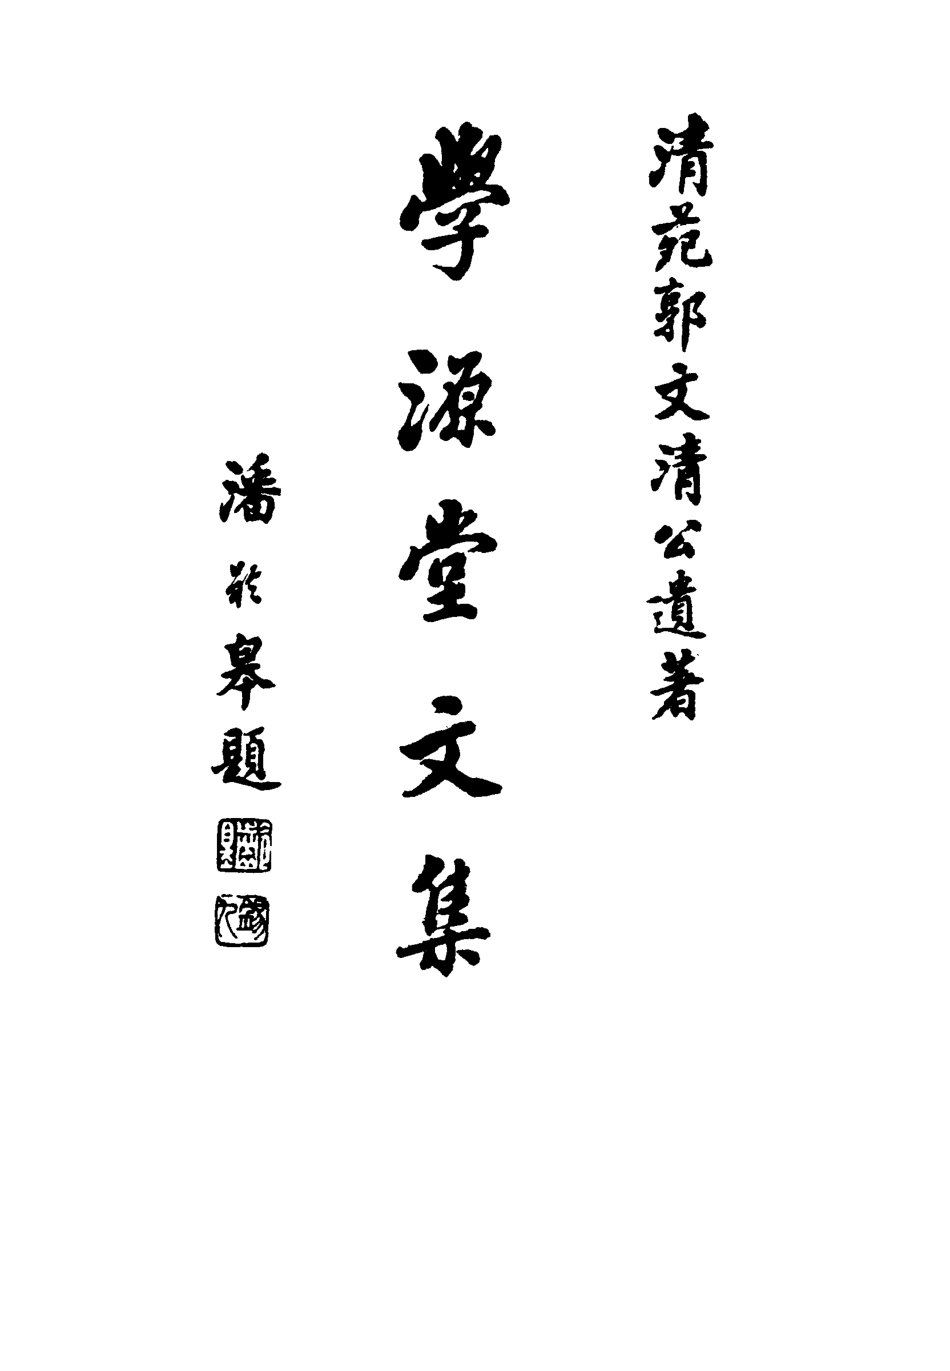 清苑郭文清公遺著
學源堂文集
潘齡皋題
錫九